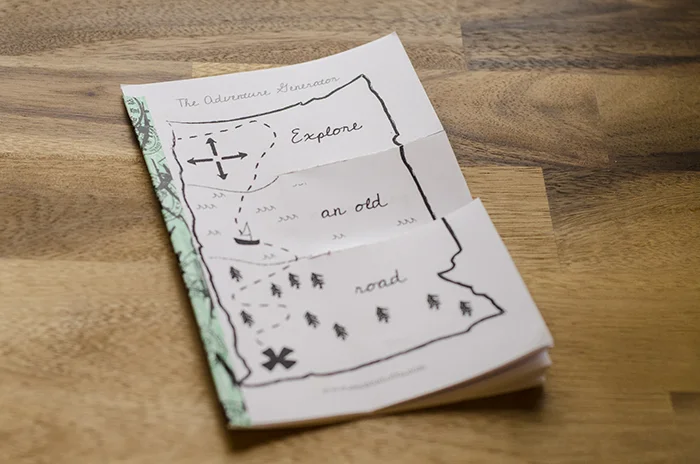 The Adventure Generator
Explore
an old
road